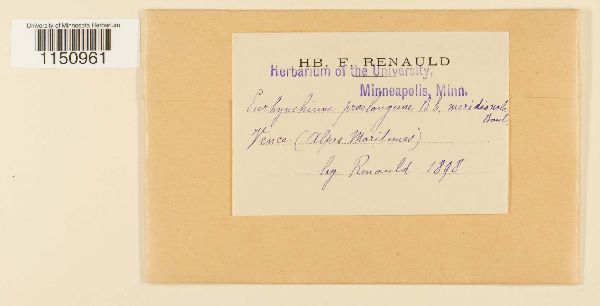 University of Minnesota Herbarium
1150961
HB. F. RENAULD
Herbarium of the University,
Minneapolis, Minn.
Eurhynchium praelongum B E. meridionale
Boul.
Vence (Alpes Maritimes)
leg Renauld 1898